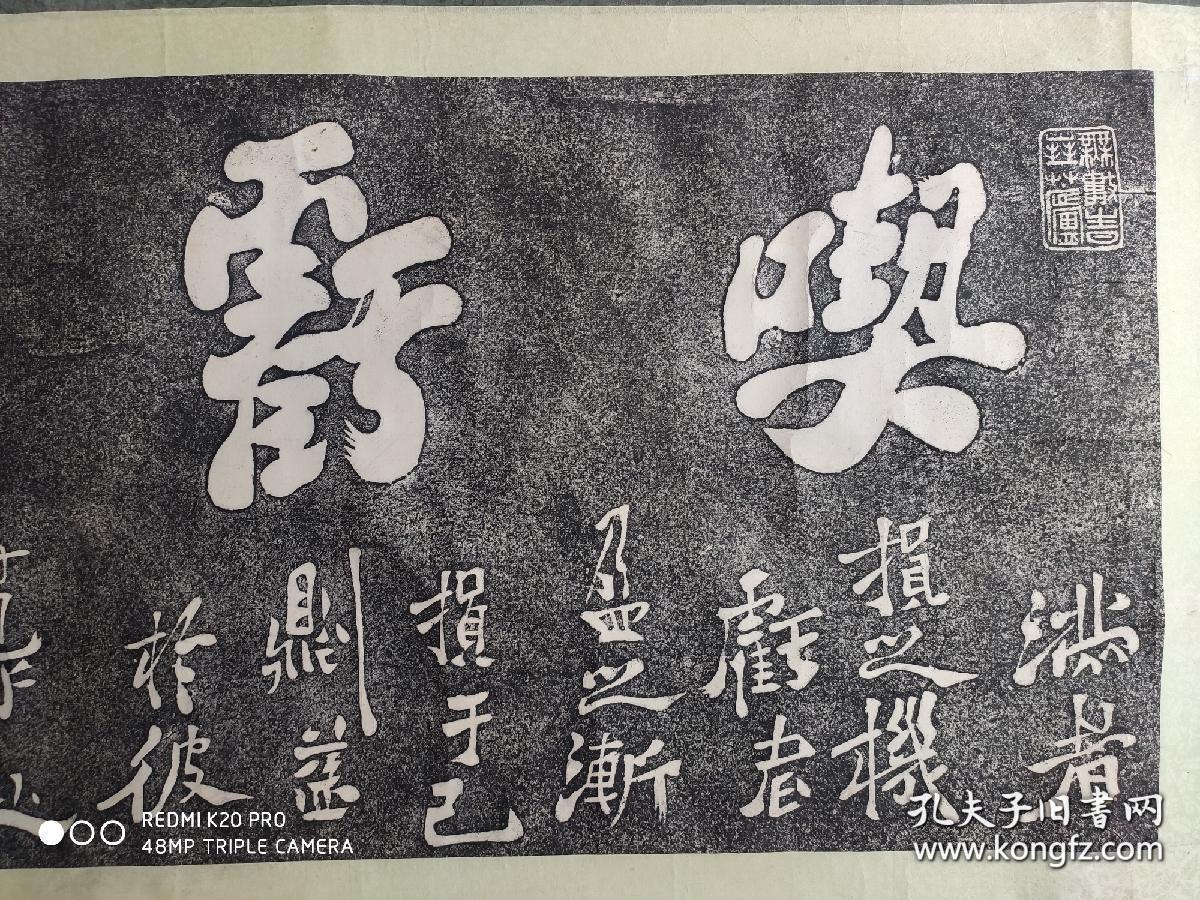 喫虧
滿者
損之機
虧者
乃盈之漸
損于己
則益
於彼
REDMI K20 PRO
48MP TRIPLE CAMERA
孔夫子旧書网
www.kongfz.com